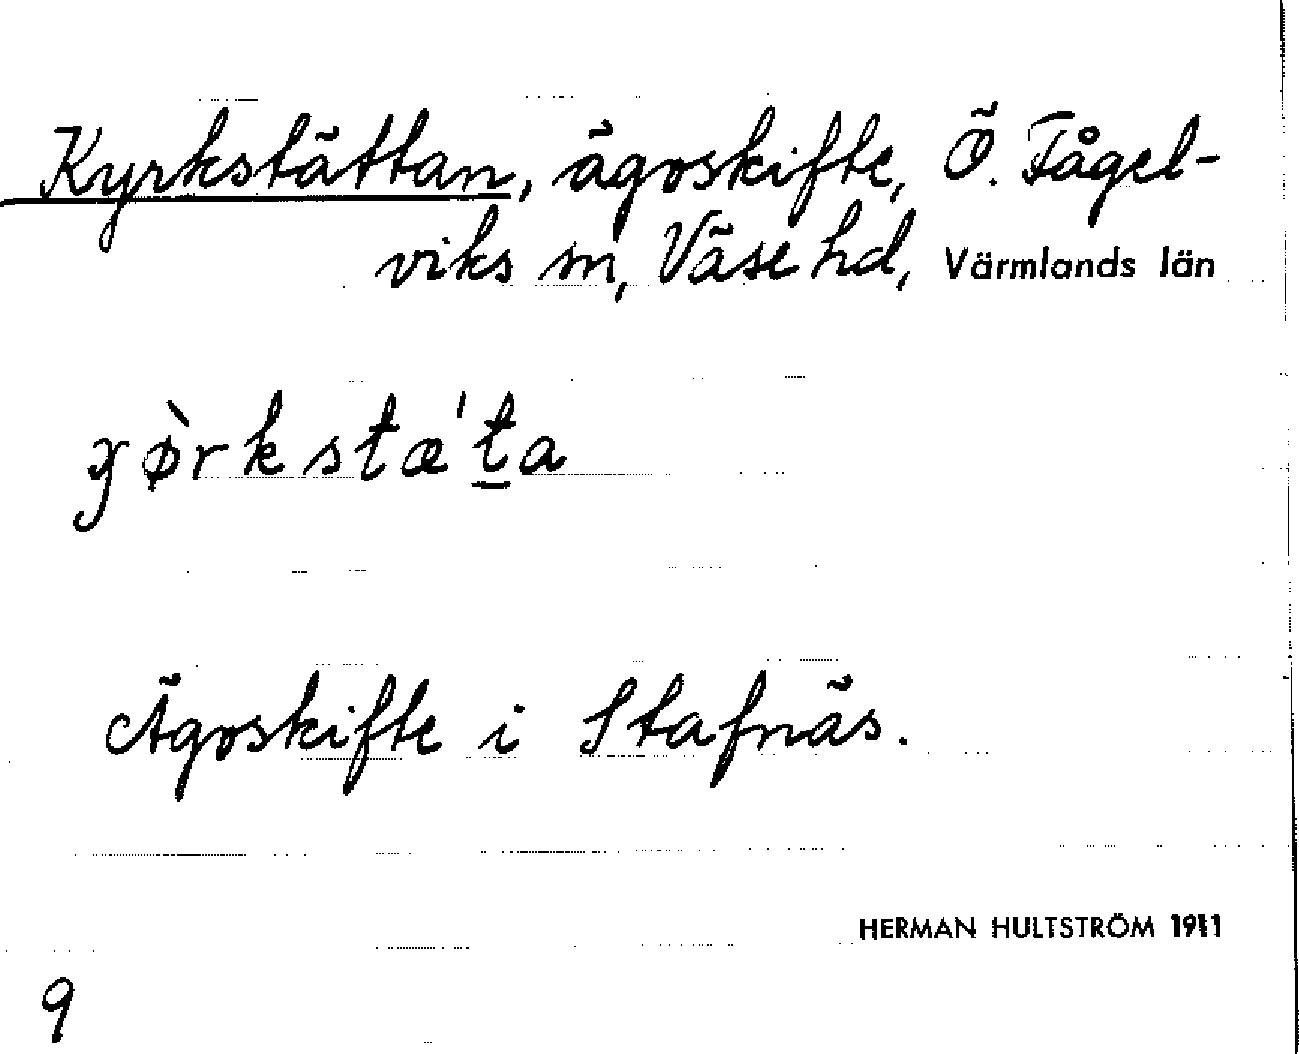 Kyrkstättan, ägoskifte, Ö. Fågel-
viks sn, Väse hd, Värmlands län
ɣø̀rkstæ'ṯa
Ägoskifte i Stafnäs.
HERMAN HULTSTRÖM 1911
9